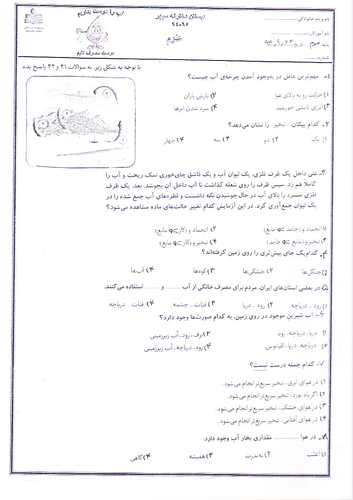 آب را درست بنوشیم
درست مصرف کنیم
دبستان دخترانه مهر
۹۴-۹۵
علوم
نام و نام خانوادگی:
نام آموزگار:
پایه: سوم
تاریخ:
شماره:
با توجه به شکل زیر، به سؤالات ۲۱ و ۲۲ پاسخ بده
۱- مهم‌ترین عامل در به‌وجود آمدن چرخه‌ی آب چیست؟
۱) حرکت رو به بالای هوا ۲) بارش باران
۳) انرژی تابشی خورشید ۴) سرد شدن ابرها
۲- کدام پیکان، تبخیر را نشان می‌دهد؟
۱) یک ۲) دو ۳) سه ۴) چهار
۳- علی داخل یک ظرف فلزی، یک لیوان آب و یک قاشق چای‌خوری نمک ریخت و آب را
کاملا هم زد. سپس ظرف را روی شعله گذاشت تا آب داخل آن بجوشد. بعد، یک ظرف
فلزی سرد را بالای آب در حال جوشیدن نگه داشت و قطره‌های آب جمع شده را در
یک لیوان جمع‌آوری کرد. در این آزمایش کدام تغییر حالت‌های ماده مشاهده می‌شود؟
۱) انجماد و (جامد به مایع) ۲) انجماد و (گاز به مایع)
۳) تبخیر و (مایع به جامد) ۴) تبخیر و (گاز به مایع)
۴- کدام‌یک جای بیش‌تری را روی زمین گرفته‌اند؟
۱) جنگل‌ها ۲) خشکی‌ها ۳) کوه‌ها ۴) آب‌ها
۵- در بعضی استان‌های ایران، مردم برای مصرف خانگی از آب ........ و ........ استفاده می‌کنند.
۱) رود - دریاچه ۲) رود - دریا ۳) قنات - چشمه ۴) قنات - دریاچه
۶- آب شیرین موجود در روی زمین، به کدام صورت‌ها وجود دارد؟
۱) دریا، دریاچه، رود ۲) برف، رود، آب زیرزمینی
۳) دریاچه، دریا، اقیانوس ۴) رود، دریاچه، آب زیرزمینی
۷- کدام جمله درست نیست؟
۱) در هوای ابری، تبخیر سریع‌تر انجام می‌شود.
۲) اگر باد بوزد، تبخیر سریع‌تر انجام می‌شود.
۳) در هوای خشک، تبخیر سریع‌تر انجام می‌شود.
۴) در هوای آفتابی، تبخیر سریع‌تر انجام می‌شود.
۸- در هوا ........ مقداری بخار آب وجود دارد.
۱) اغلب ۲) به‌ندرت ۳) همیشه ۴) گاهی